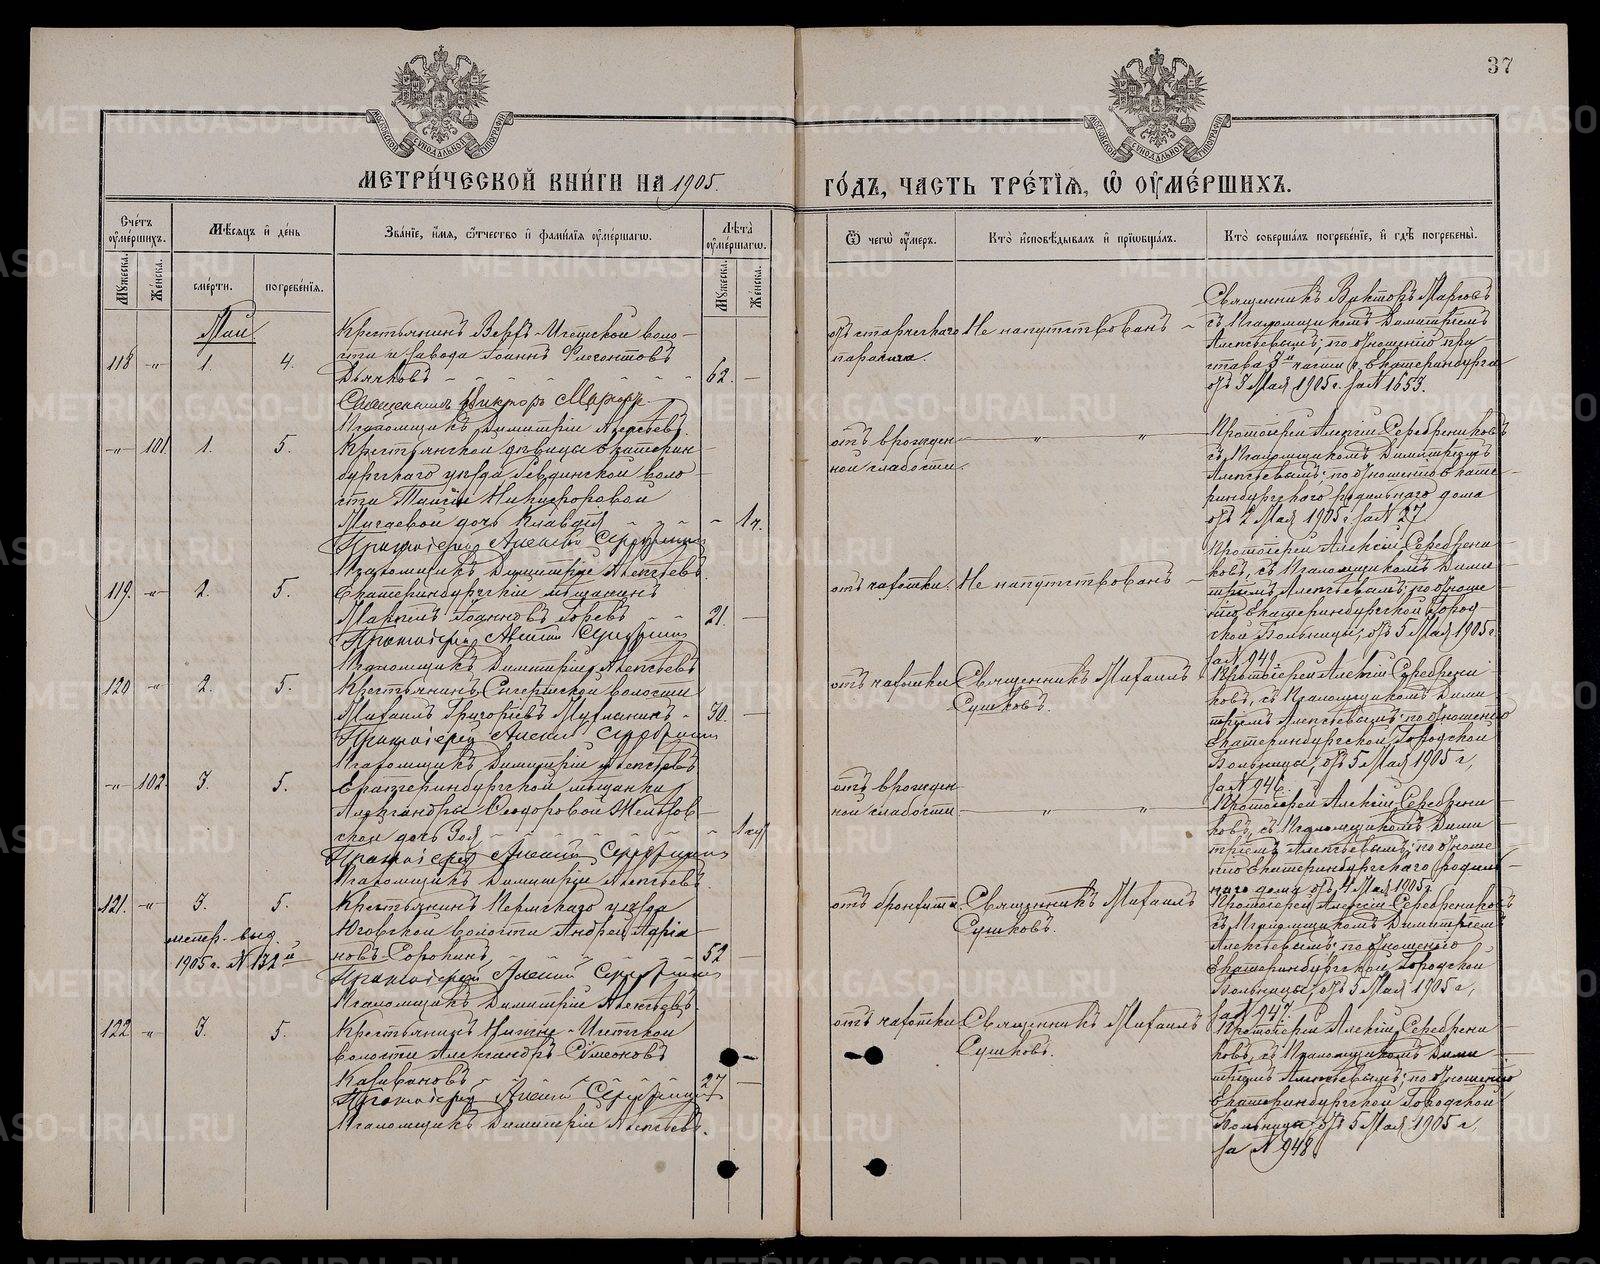 37
МЕТРИ́ЧЕСКОЙ КНИ́ГИ НА 1905.
ГО́ДЪ, ЧАСТЬ ТРЕ́ТІѦ, Ѡ ОУМЕ́РШИХЪ.
Сче́тъ оуме́ршихъ.
Мѣсѧцъ и де́нь
Зва́нїе, и́мѧ, ѻ́тчество и фами́лїѧ оуме́ршагѡ.
Лѣта̀ оуме́ршагѡ.
Ѿ чегѡ̀ оу́меръ.
Кто̀ и̓сповѣ́дывалъ и прїѡбща́лъ.
Кто̀ соверша́лъ погребе́нїе, и гдѣ̀ погребены̀.
Мꙋжеска.
Же́нска.
сме́рти.
погребе́нїѧ.
Мꙋжеска.
Же́нска.
Май
118 -"- 1. 4.
Крестьянинъ Верхъ-Исетской воло-
сти и завода Іоаннъ Флегонтовъ
Дьячковъ 62. —
Священникъ Викторъ
Псаломщикъ Димитрій Алексѣевъ.
отъ старческаго
паралича.
Не напутствованъ
Священникъ Викторъ
съ Псаломщикомъ Димитріемъ
Алексѣевымъ; по отношенію при
става 3й части г. Екатеринбурга
отъ 3 Мая 1905 г. за № 1653.
-"- 101. 1. 5.
Крестьянской дѣвицы Екатерин-
бургскаго уѣзда Ревдинской воло-
сти Таисіи Никифоровой
дочь Клавдія 1 ч.
Протоіерей Алексій Серебрениковъ
Псаломщикъ Димитрій Алексѣевъ.
отъ врожден-
ной слабости.
Протоіерей Алексій Серебрениковъ
съ Псаломщикомъ Димитріемъ
Алексѣевымъ; по отношенію Екате-
ринбургскаго родильнаго дома
отъ 2 Мая 1905 г. за № 27
119. -"- 2. 5.
Екатеринбургскій мѣщанинъ
Іоанновъ 21. —
Протоіерей Алексій Серебрениковъ
Псаломщикъ Димитрій Алексѣевъ
отъ чахотки.
Не напутствованъ
Протоіерей Алексій Серебрени-
ковъ, съ Псаломщикомъ Дими-
тріемъ Алексѣевымъ; по отноше
нію Екатеринбургской Город-
ской Больницы, отъ 5 Мая 1905 г.
за № 949.
120 -"- 2. 5.
Крестьянинъ волости
Михаилъ Григорьевъ 30. —
Протоіерей Алексій Серебрениковъ
Псаломщикъ Димитрій Алексѣевъ
отъ чахотки
Священникъ Михаилъ
Сушковъ.
Протоіерей Алексій Серебрени
ковъ, съ Псаломщикомъ Дими
тріемъ Алексѣевымъ; по отношенію
Екатеринбургской Городской
Больницы, отъ 5 Мая 1905 г.,
за № 946.
-"- 102. 3. 5.
Екатеринбургской мѣщанки
Александры Ѳеодоровой
ской дочь Зоя 1
Протоіерей Алексій Серебрениковъ
Псаломщикъ Димитрій Алексѣевъ.
отъ врожден
ной слабости
Протоіерей Алексій Серебрени
ковъ, съ Псаломщикомъ Дими
тріемъ Алексѣевымъ; по отноше
нію Екатеринбургскаго родиль-
наго дома отъ 4 Мая 1905 г.
121. -"- 3. 5.
метр. выд.
1905 г. № 132й
Крестьянинъ Пермскаго уѣзда
Юговской волости Андрей Адріа-
новъ Сорокинъ 52 —
Протоіерей Алексій Серебрениковъ
Псаломщикъ Димитрій Алексѣевъ.
отъ бронхита.
Священникъ Михаилъ
Сушковъ.
Протоіерей Алексій Серебрениковъ
съ Псаломщикомъ Димитріемъ
Алексѣевымъ; по отношенію
Екатеринбургской Городской
Больницы, отъ 5 Мая 1905 г.,
за № 947.
122 -"- 3. 5.
Крестьянинъ Нижне-Исетской
волости Александръ Сѵмеоновъ
Каливановъ 27 —
Протоіерей Алексій Серебрениковъ
Псаломщикъ Димитрій Алексѣевъ.
отъ чахотки
Священникъ Михаилъ
Сушковъ.
Протоіерей Алексій Серебрени
ковъ, съ Псаломщикомъ Дими
тріемъ Алексѣевымъ; по отношенію
Екатеринбургской Городской
Больницы отъ 5 Мая 1905 г.,
за № 948.
METRIKI.GASO-URAL.RU